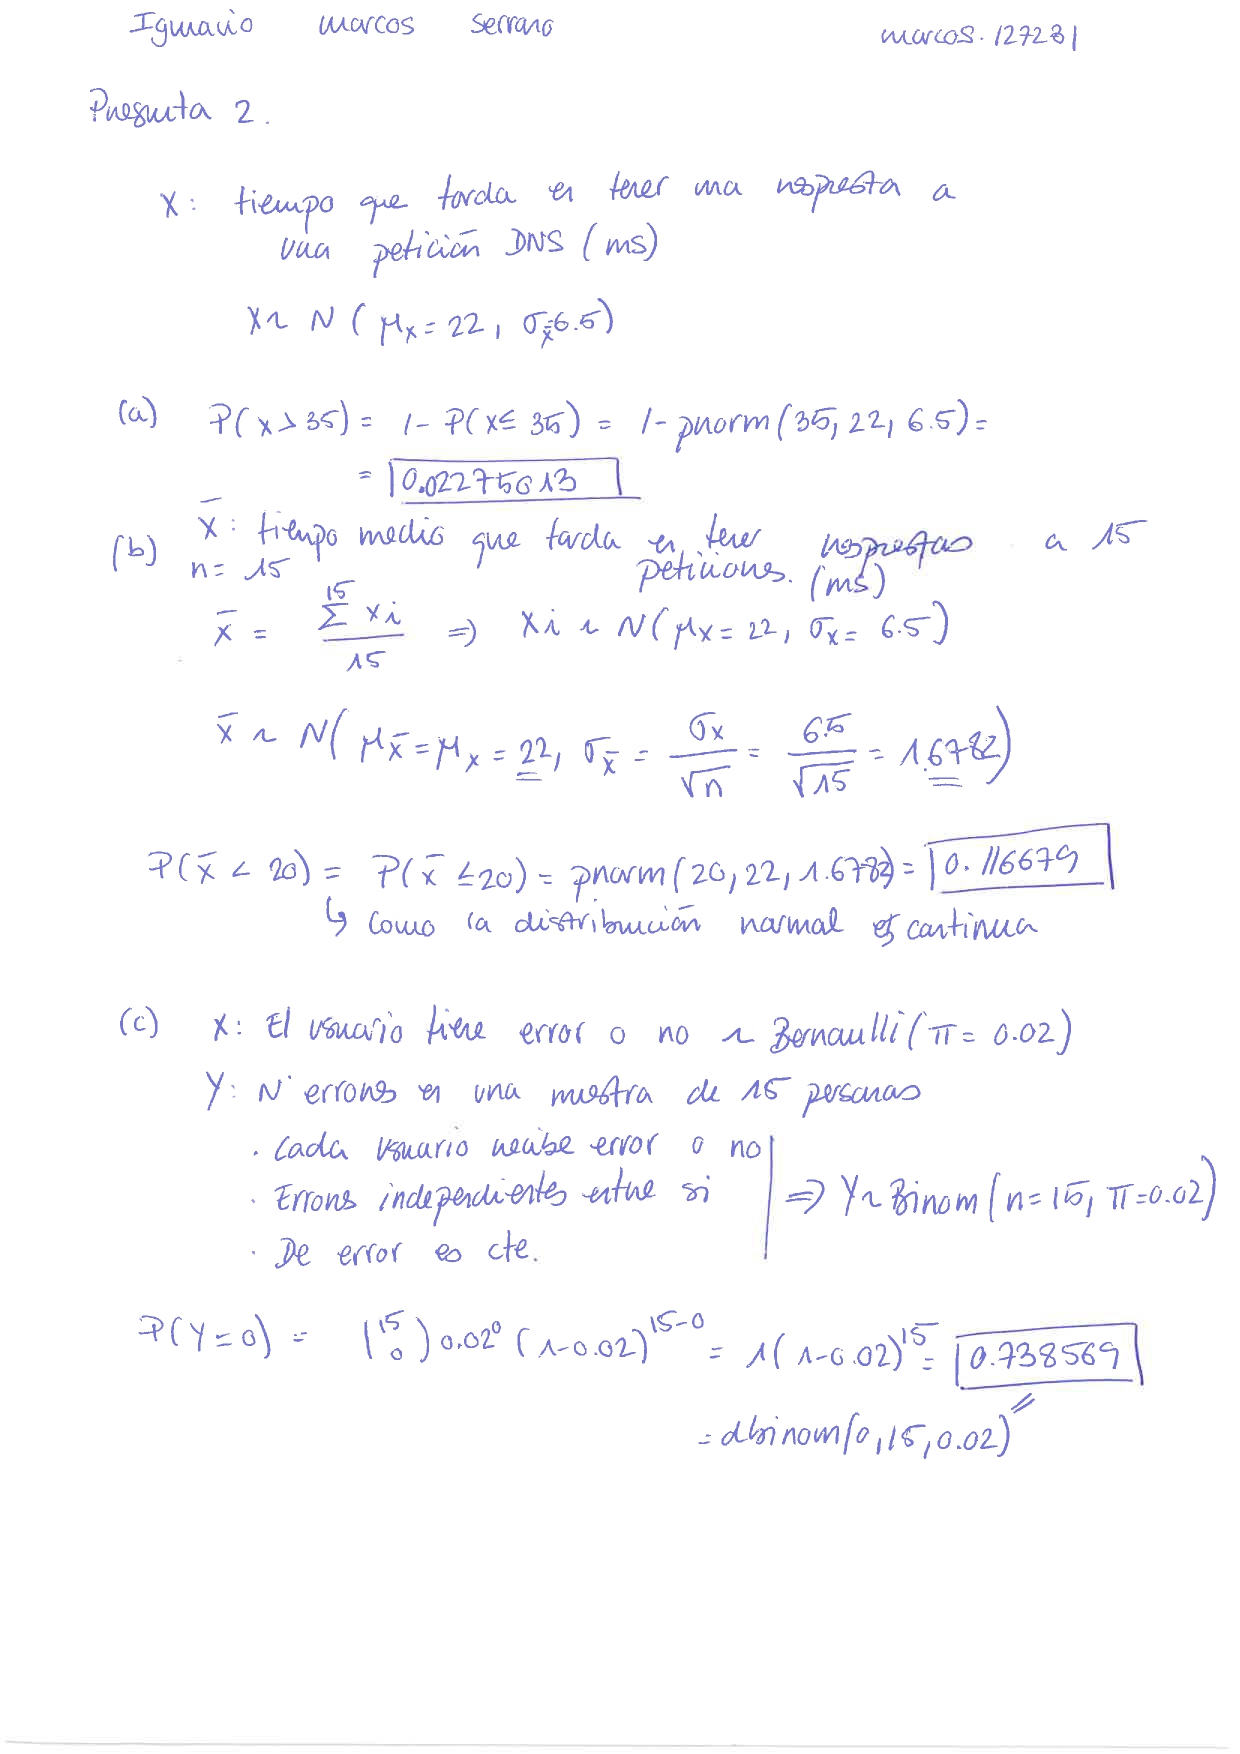 Ignacio Marcos Serrano marcos.127281
Pregunta 2.
X: tiempo que tarda en tener una respuesta a
una petición DNS (ms)
X ~ N ( μx = 22, σx = 6.5)
(a) P(x > 35) = 1 - P(x ≤ 35) = 1 - pnorm(35, 22, 6.5) =
= 0.02275013
(b) x̄: tiempo medio que tarda en tener respuestas a 15
n = 15 peticiones. (ms)
x̄ = Σ¹⁵ xi / 15 => Xi ~ N(μx = 22, σx = 6.5)
x̄ ~ N( μx̄ = μx = 22, σx̄ = σx / √n = 6.5 / √15 = 1.6782)
P(x̄ < 20) = P(x̄ ≤ 20) = pnorm(20, 22, 1.6782) = 0.116679
↳ Como la distribución normal es continua
(c) X: El usuario tiene error o no ~ Bernoulli(π = 0.02)
Y: Nº errores en una muestra de 15 personas
· Cada usuario recibe error o no
· Errores independientes entre si => Y ~ Binom(n = 15, π = 0.02)
· De error es cte.
P(Y = 0) = (15 0) 0.02⁰ (1 - 0.02)¹⁵⁻⁰ = 1(1 - 0.02)¹⁵ = 0.738569
= dbinom(0, 15, 0.02)